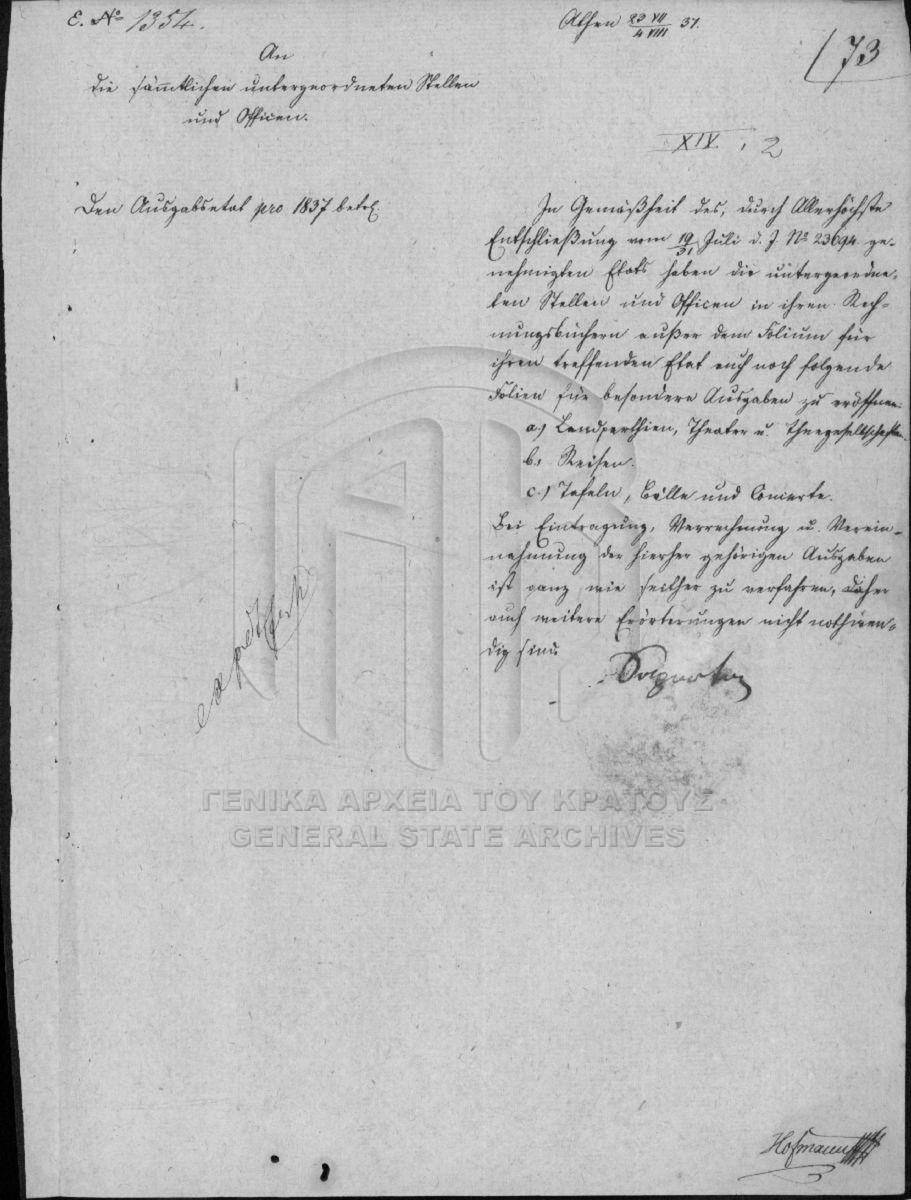 E. No 1354.
Athen 23 VII / 4 VIII 37.
73
An
die sämmtlichen untergeordneten Stellen
und Officen.
XIV. 2
Den Ausgabsetat pro 1837 betr.
In Gemäßheit des, durch Allerhöchste
Entschließung vom 19/31 Juli d. J. No 23694 ge-
nehmigten Etats haben die untergeordne-
ten Stellen und Officen in ihren Rech-
nungsbüchern außer dem Folium für
ihren treffenden Etat auch noch folgende
Folien für besondere Ausgaben zu eröffnen.
a.) Landparthien, Theater u. Theegesellschaften.
b., Reisen.
c.) Tafeln, Bälle und Concerte.
Bei Eintragung, Verrechnung u. Verein-
nahmung der hierher gehörigen Ausgaben
ist ganz wie seither zu verfahren, daher
auch weitere Erörterungen nicht nothwen-
dig sind.
Hofmann
ΓΕΝΙΚΑ ΑΡΧΕΙΑ ΤΟΥ ΚΡΑΤΟΥΣ
GENERAL STATE ARCHIVES